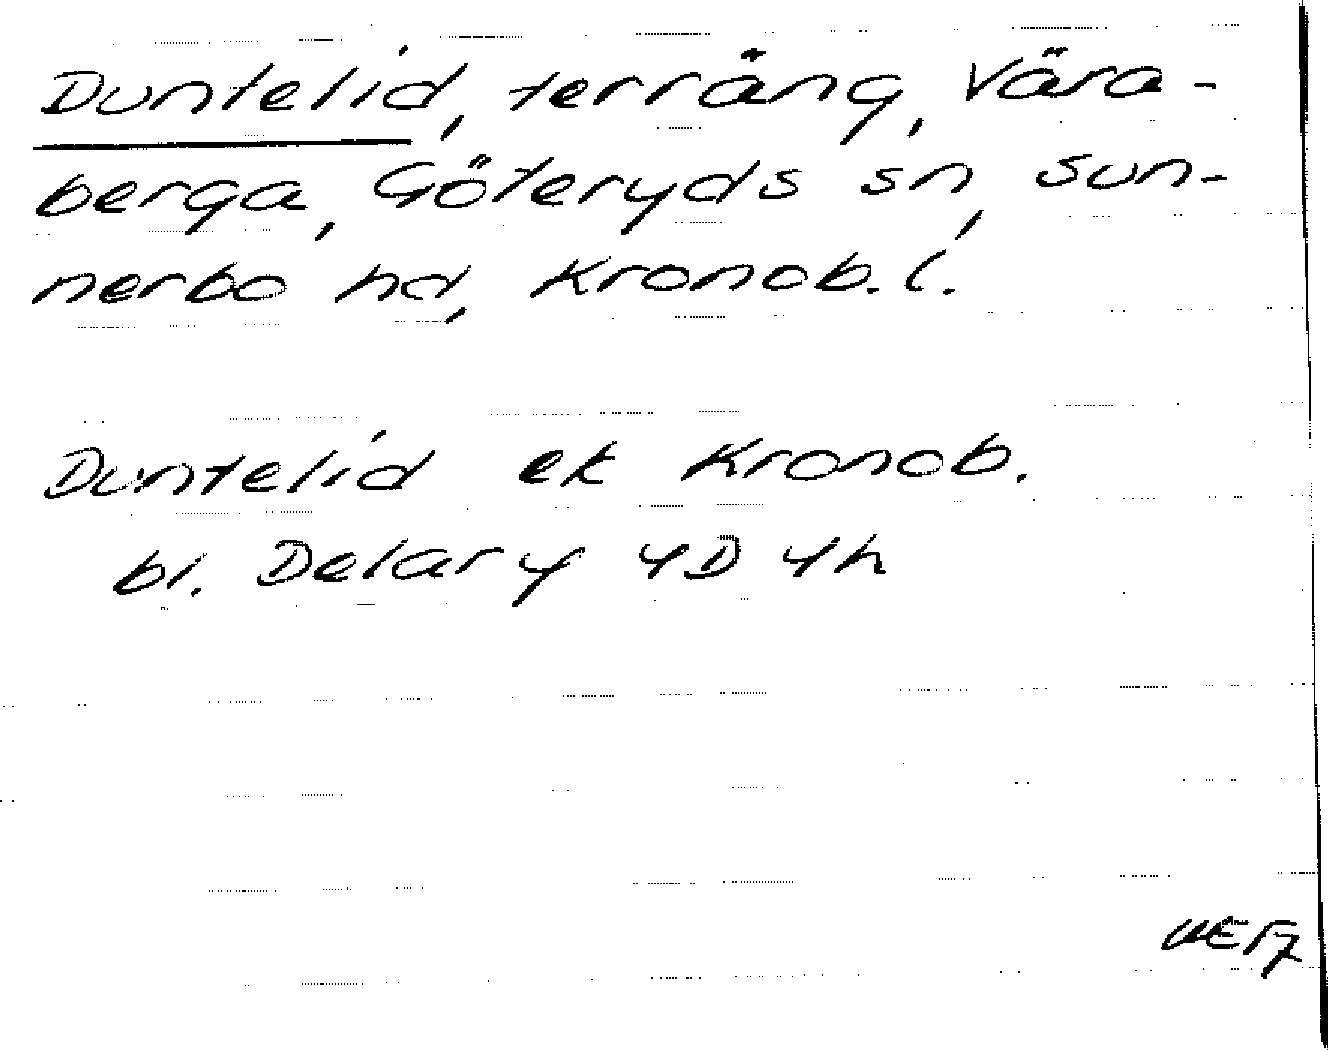 Duntelid, terräng, Vära-
berga, Göteryds sn, Sun-
nerbo hd, Kronob. l.
Duntelid ek Kronob.
bl. Delary 4D 4h